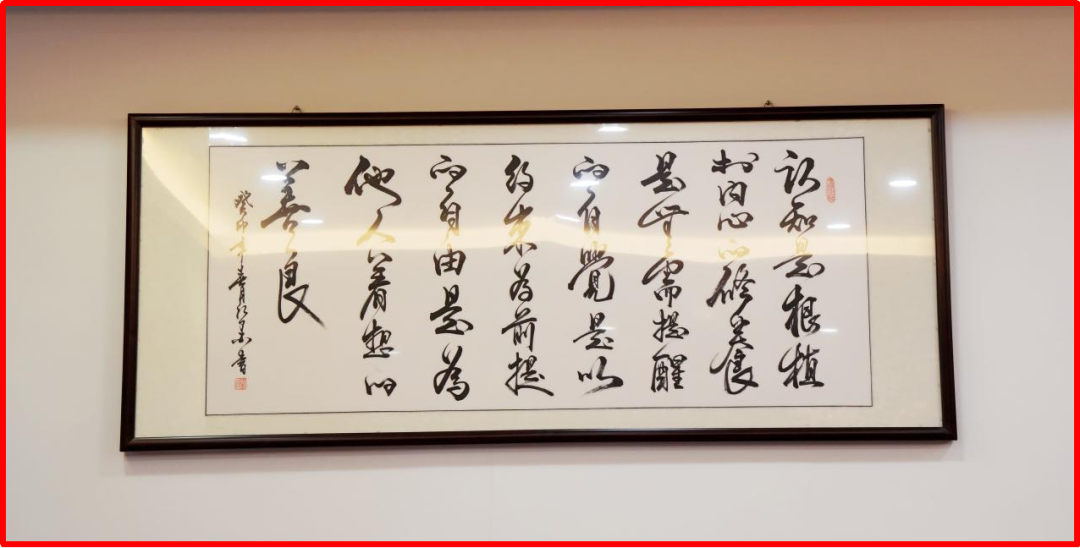 认知是根植
於内心的修養
是無需提醒
的自覺是以
約束为前提
的自由是為
他人着想的
善良
癸卯年春月